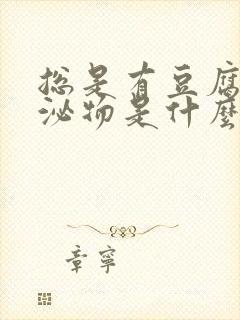 总是有豆腐
泌物是什麼
章寧